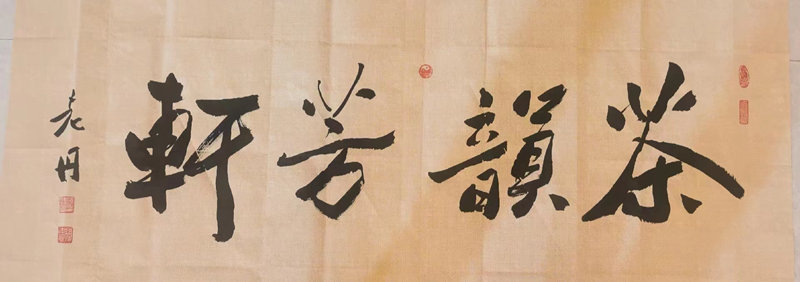 茶韻芳軒
老丹